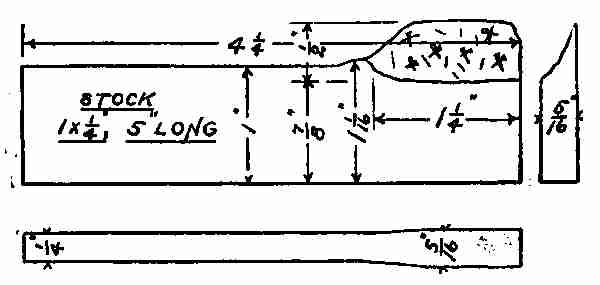 4 1/4
1/2"
STOCK
1 x 1/4", 5" LONG
1"
7/8"
1 1/16"
1 1/4"
5/16"
1/4"
5/16"